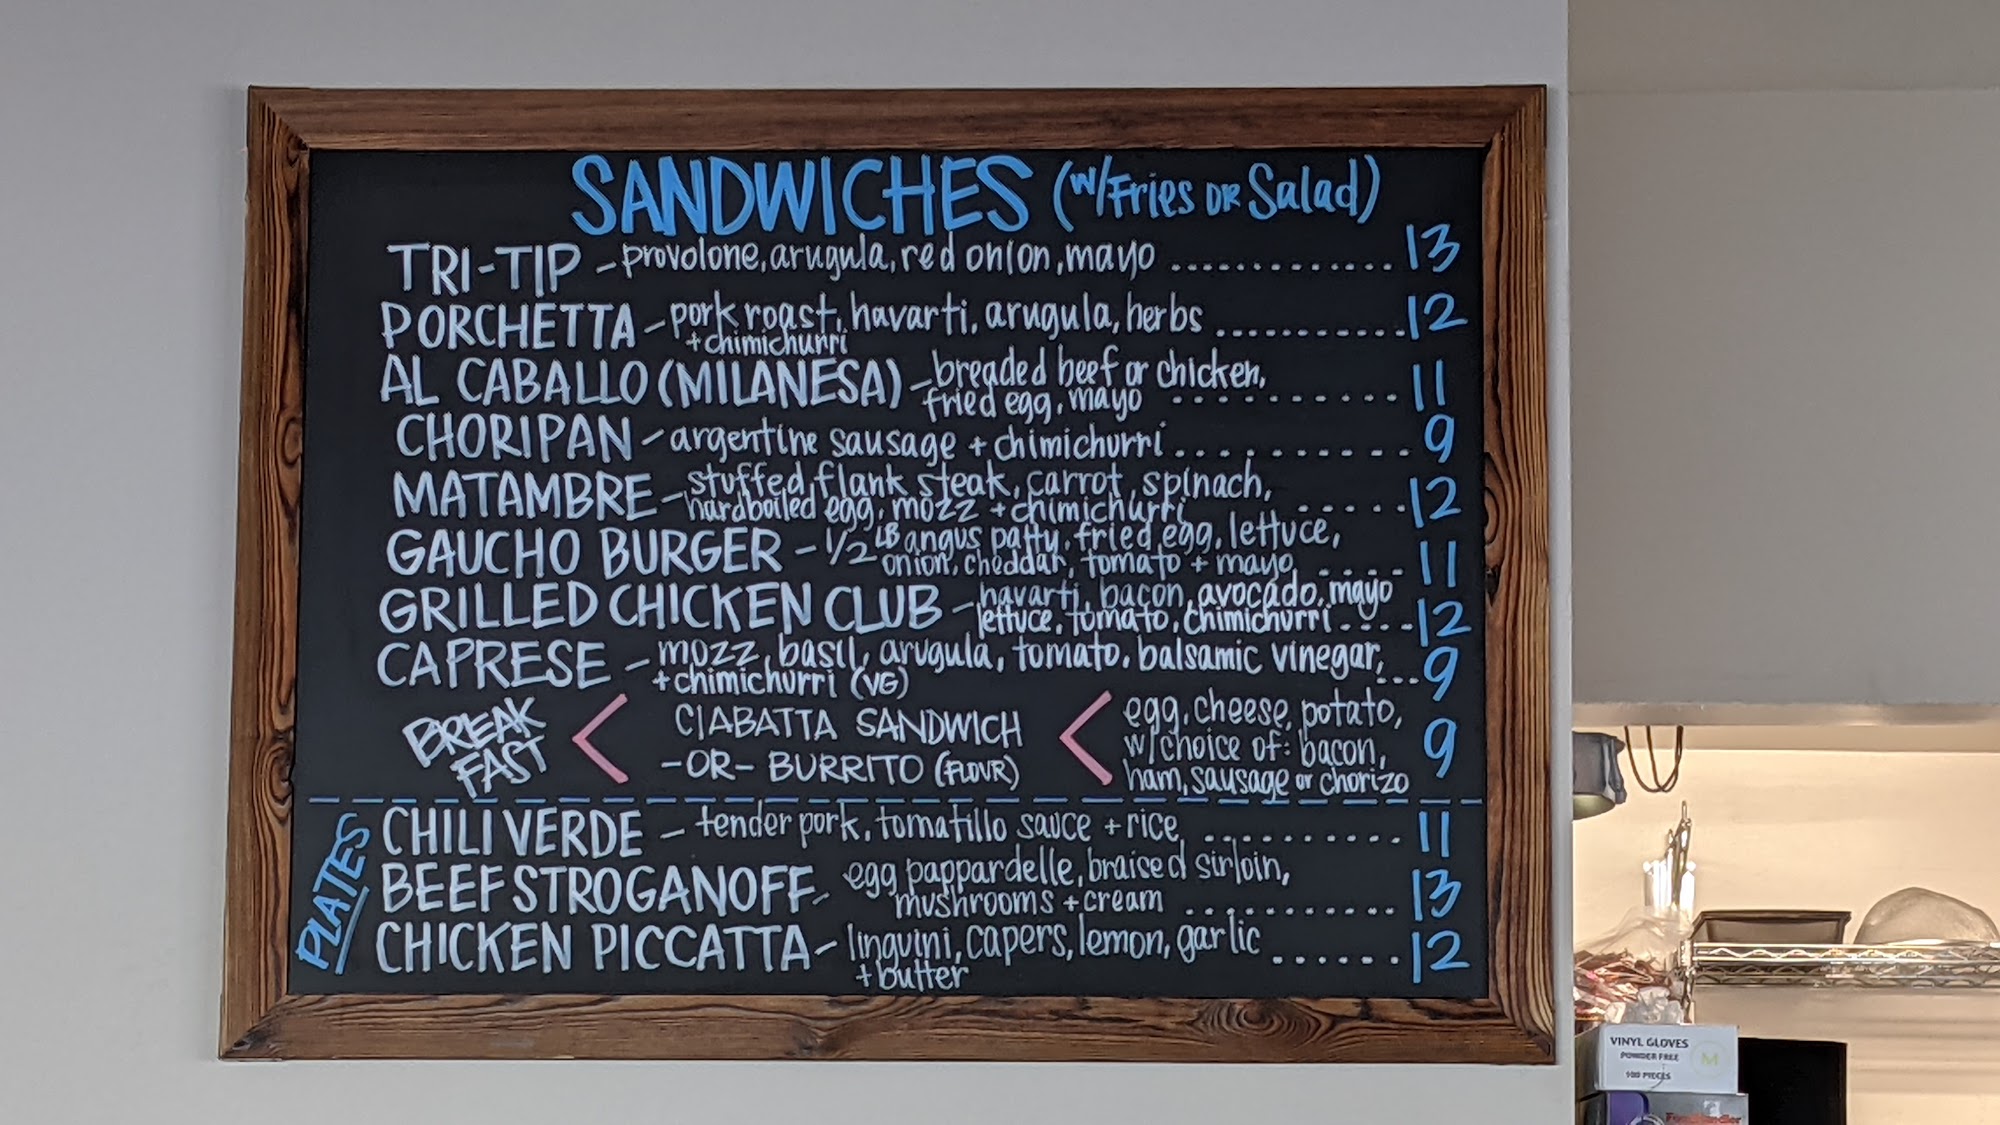 SANDWICHES (w/Fries or Salad)
TRI-TIP - provolone, arugula, red onion, mayo ............. 13
PORCHETTA - pork roast, havarti, arugula, herbs ........... 12
+ chimichurri
AL CABALLO (MILANESA) - breaded beef or chicken,
fried egg, mayo .......... 11
CHORIPAN - argentine sausage + chimichurri ........... 9
MATAMBRE - stuffed flank steak, carrot, spinach,
hardboiled egg, mozz + chimichurri ..... 12
GAUCHO BURGER - 1/2 LB angus patty, fried egg, lettuce,
onion, cheddar, tomato + mayo ..... 11
GRILLED CHICKEN CLUB - havarti, bacon, avocado, mayo
lettuce, tomato, chimichurri .... 12
CAPRESE - mozz, basil, arugula, tomato, balsamic vinegar, ... 9
+ chimichurri (VG)
BREAK
FAST
CIABATTA SANDWICH
-OR- BURRITO (FLOUR)
egg, cheese, potato,
w/choice of: bacon,
ham, sausage or chorizo
9
PLATES
CHILI VERDE - tender pork, tomatillo sauce + rice .......... 11
BEEF STROGANOFF - egg pappardelle, braised sirloin,
mushrooms + cream ........... 13
CHICKEN PICCATTA - linguini, capers, lemon, garlic ...... 12
+ butter
VINYL GLOVES
POWDER FREE
M
100 PIECES
FoodHandler